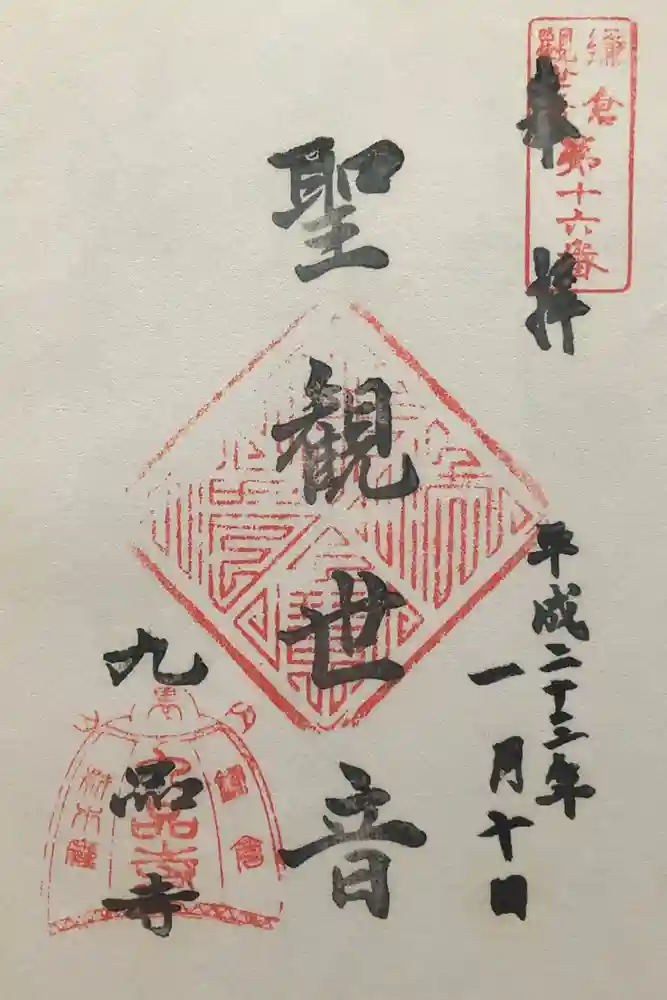 鎌倉
観世音
第十六番
奉拝
聖観世音
平成二十三年
一月十日
九品寺
鎌倉
九品寺